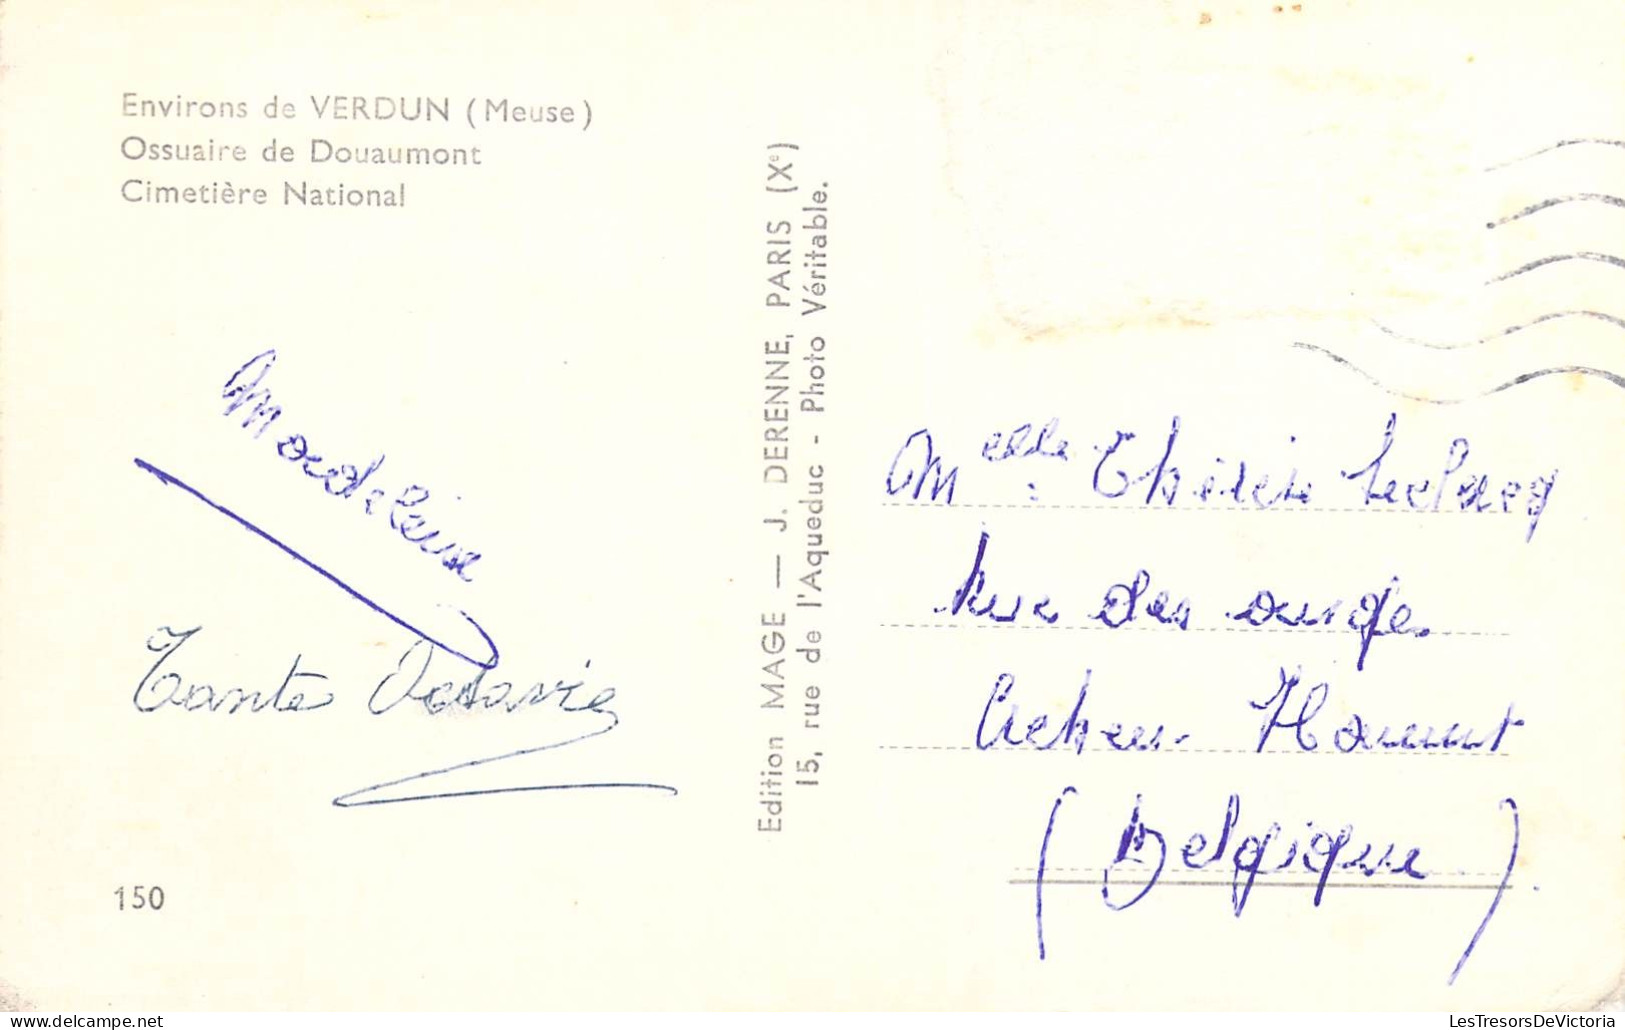 Environs de VERDUN (Meuse)
Ossuaire de Douaumont
Cimetière National
Madeleine
Tante Octavie
150
Edition MAGE — J. DERENNE, PARIS (Xe)
15, rue de l'Aqueduc - Photo Véritable.
Melle Leclercq
Rue des
(Belgique)
www.delcampe.net
LesTresorsDeVictoria